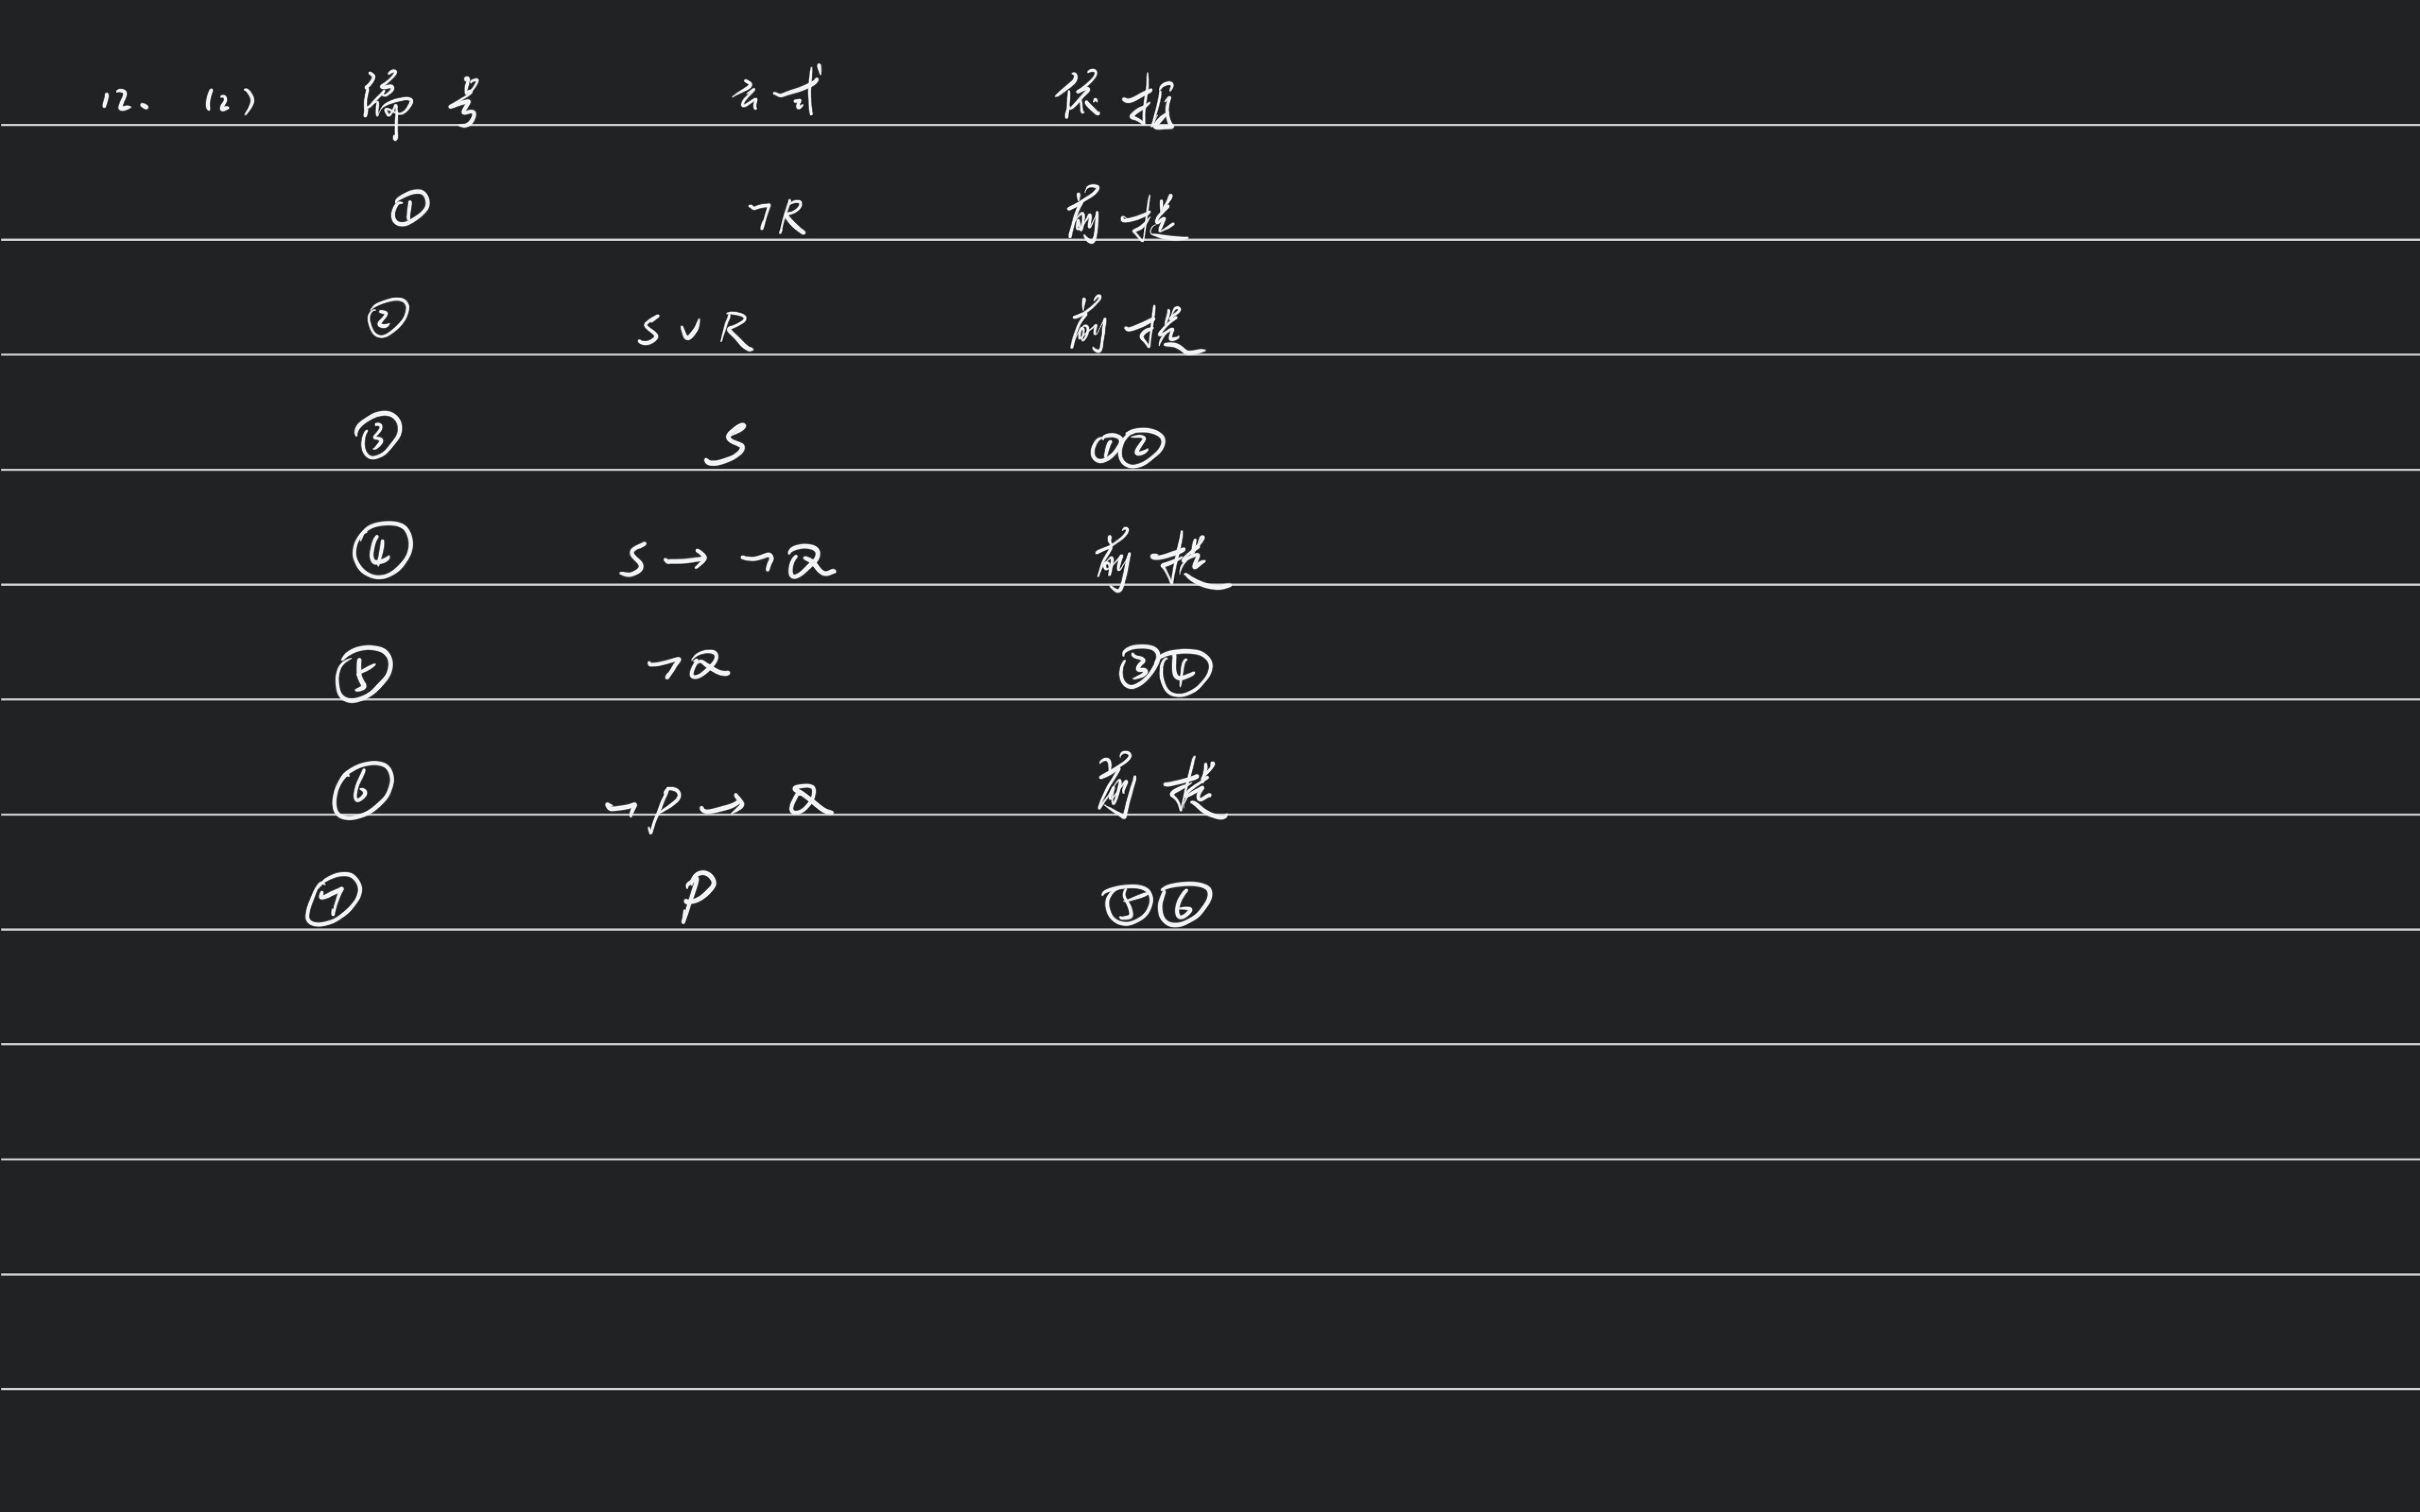 12. (2) 序号 公式 依据
① ¬R 前提
② S∨R 前提
③ S ①②
④ S→¬Q 前提
⑤ ¬Q ③④
⑥ ¬P→Q 前提
⑦ P ⑤⑥